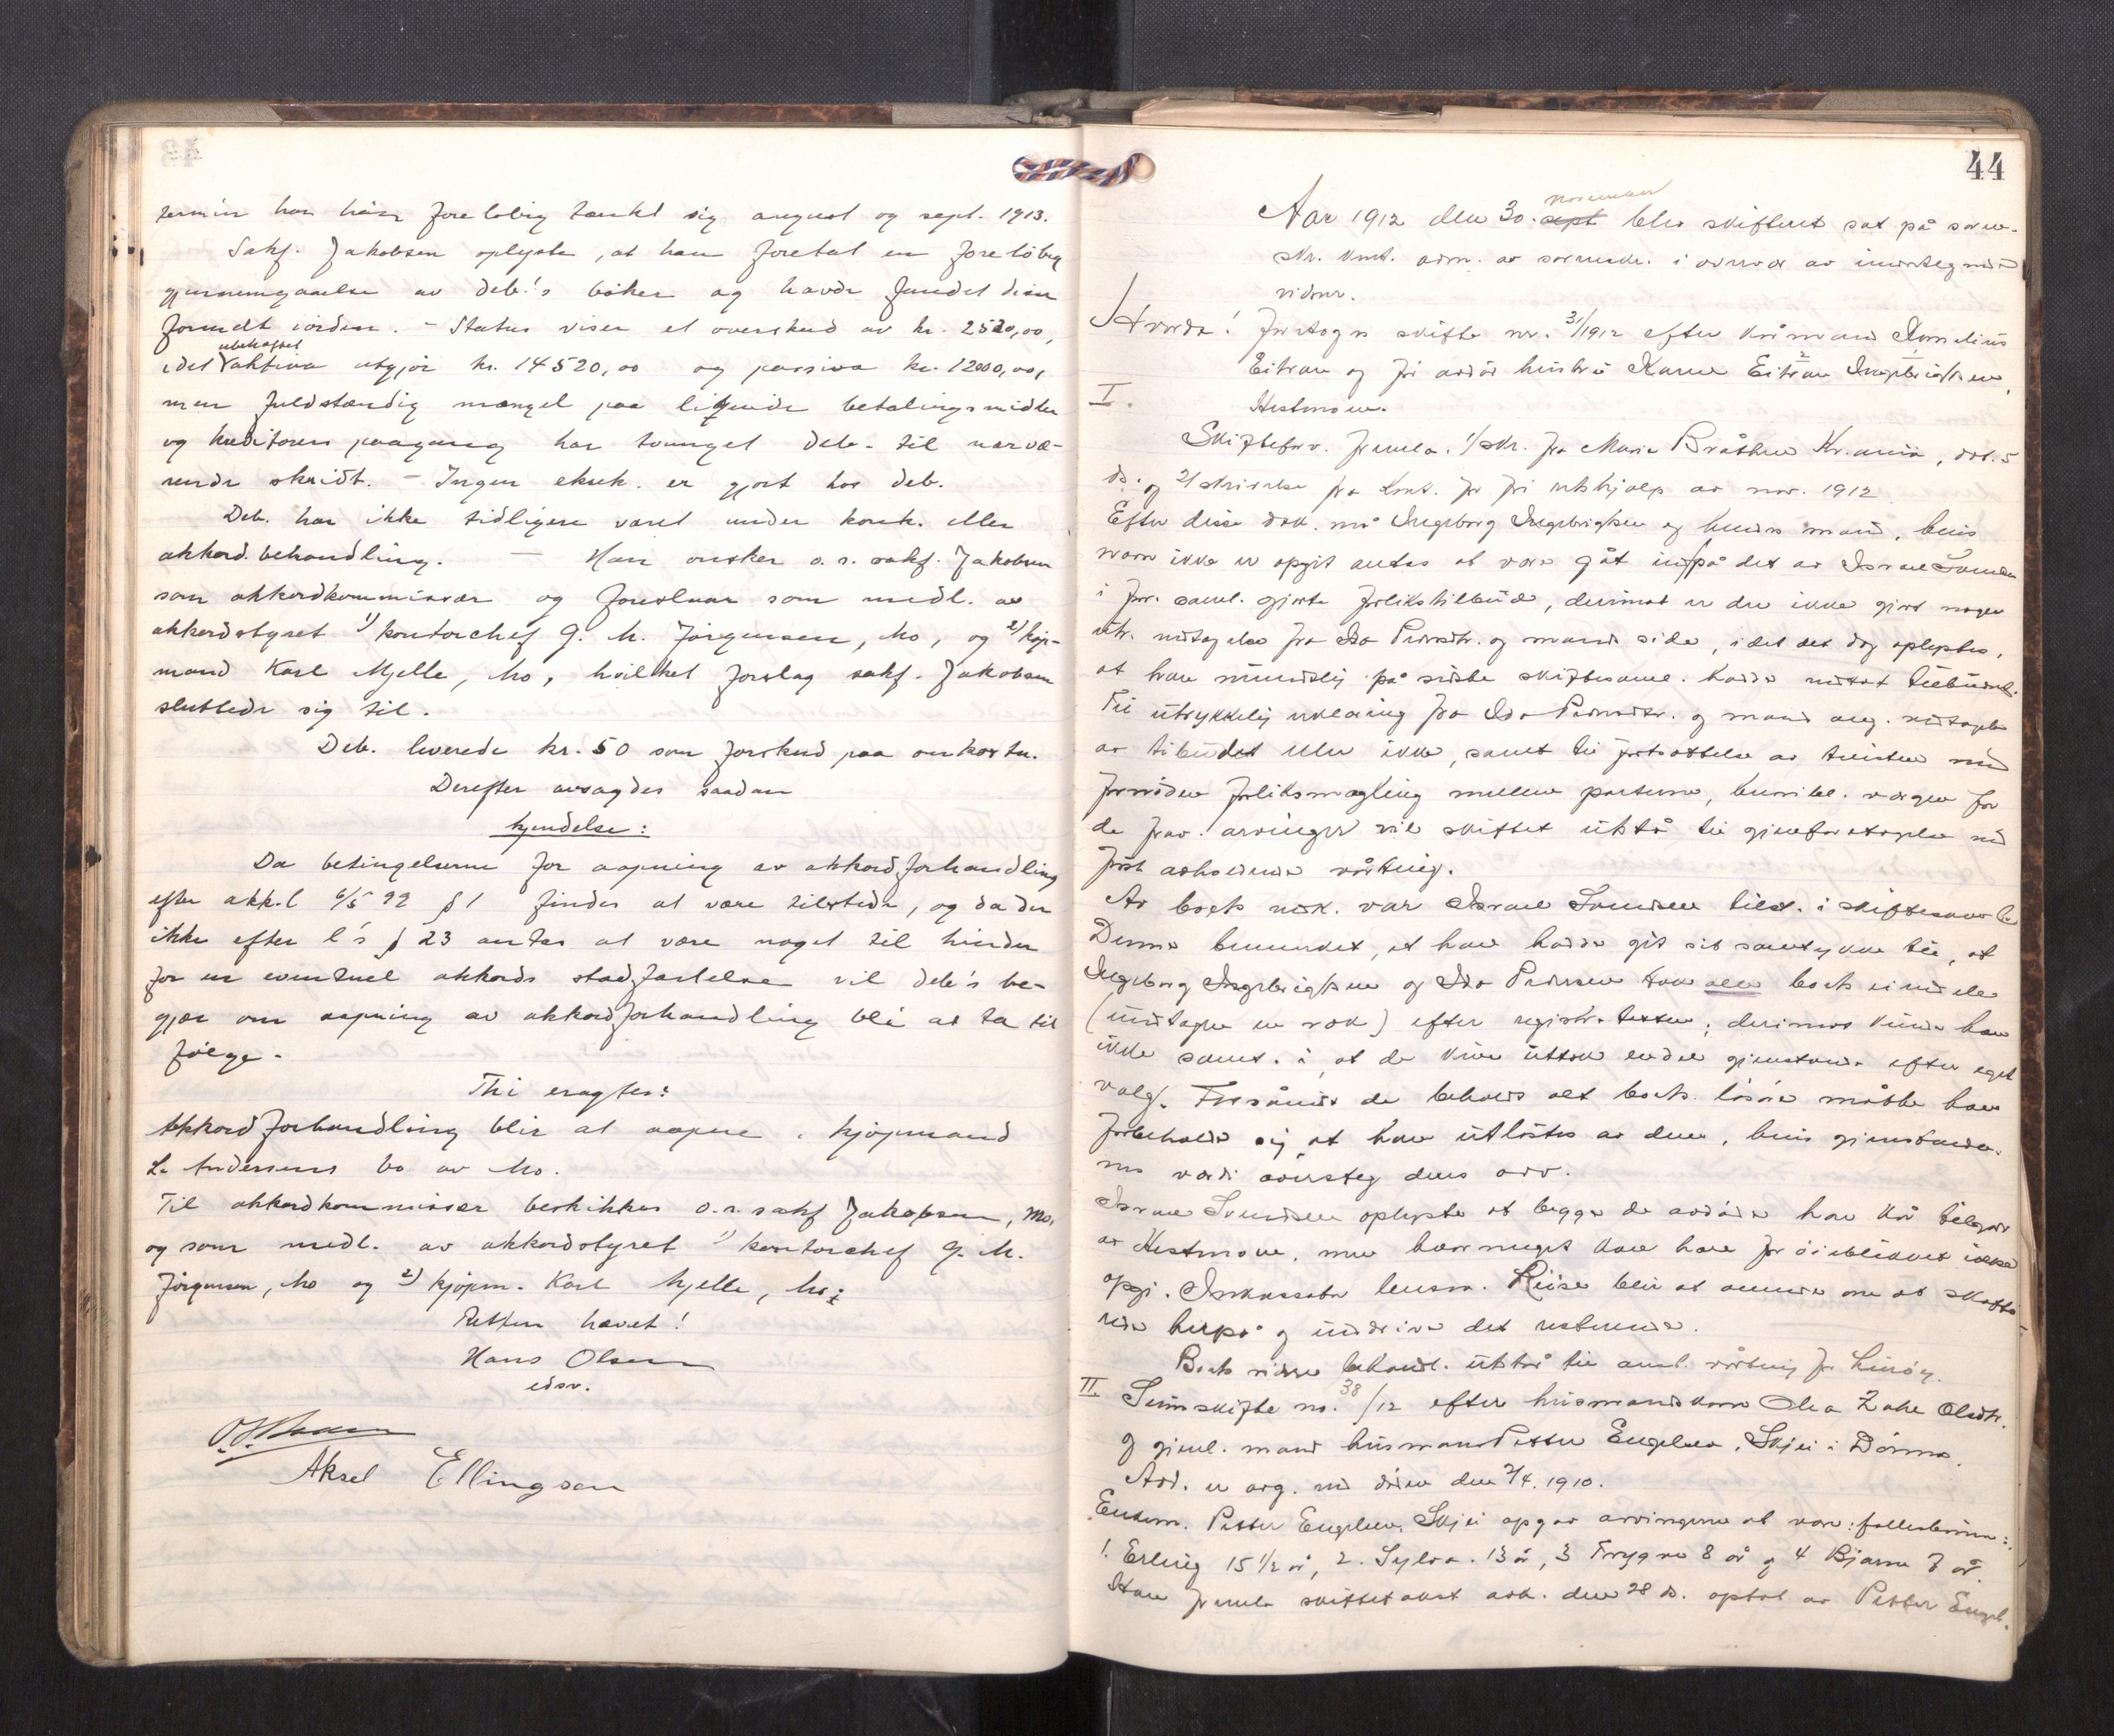 termin har han foreløbig tænkt sig august og sept. 1913.
Sakf. Jakobsen oplyste, at han foretat en foreløbig
gjennemgaaelse av deb.'s bøker og havde fundet disse
formelt iorden. - Status viser et overskud av kr. 2520,00,
idet ubehæftet aktiva utgjør kr. 14520,00 og passiva kr. 12000,00,
men fuldstændig mangel paa likvide betalingsmidler
og kreditorers paagang har tvunget deb. til nærvæ-
rende skridt. - Ingen eksek. er gjort hos deb.
Deb. har ikke tidligere været under konk. eller
akkord.behandling. — Han ønsker o.r. sakf. Jakobsen
som akkordkommissær og foreslaar som medl. av
akkordstyret 1) kontorchef G. M. Jørgensen, Mo, og 2) kjøp-
mand Karl Mjelle, Mo, hvilket forslag sakf. Jakobsen
sluttede sig til.
Deb. leverede kr. 50 som forskud paa omkostn.
Derefter avsagdes saadan
kjendelse:
Da betingelserne for aapning av akkordforhandling
efter akk.l 6/5 99 § 1 findes at være tilstede, og da der
ikke efter l's § 23 antas at være noget til hinder
for en eventuel akkords stadfæstelse vil deb's be-
gjær om aapning av akkordforhandling bli at ta til
følge.
Thi eragtes:
Akkordforhandling blir at aapne i kjøpmand
L. Andersens bo av Mo.
Til akkordkommissær beskikkes o.r. sakf Jakobsen, Mo,
og som medl. av akkordstyret 1) kontorchef G. M.
Jørgensen, Mo og 2) kjøpm. Karl Mjelle, Mo;
Retten hævet!
Hans Olsen
edsv.
Aksel Ellingsen
44
november
Aar 1912 den 30. sept blev skifteret sat på soren-
skr. kont. adm. av sorenskr. i overvær av undertegnede
vidner.
Hvorda! Foretoges skifte nr. 31/1912 efter kårmand Kornelius
Eitran og før avdøde hustru Karen Eitran Ingebrigtsen,
I. Hestmoen.
Skifteforv. fremla. 1/ skr. fra Marie Bråthen Kr.ania, dat. 5
ds. og 2/ skrivelse fra kont. for fri retshjælp av nov. 1912
Efter disse dok. må Ingeborg Ingebrigtsen og hendes mand, hvis
navn ikke er opgit antas at være gåt ind på det av Israel Svendsen
i forr. saml. gjorte forlikstilbud, derimot er der ikke gjort nogen
utr. vedtagelse fra Ida Pedersdtr. og mands side, idet det dog oplystes,
at han mundtlig på sidste skiftesaml. hadde vedtat tilbudet.
Til utrykkelig erklæring fra Ida Pedersdtr. og mand ang. vedtagelse
av tilbudet eller ikke, samt til fortsættelse av tvisten med
fornøden forliksmægling mellem parterne, herunder vergen for
de frav. arvinger vil skiftet utstå til gjenforetagelse ved
først avholdende vårting.
Av boets vedk. var Israel Svendsen tilst. i skiftesaml.
Denne bemerket, at han hadde git sit samtykke til, at
Ingeborg Ingebrigtsen og Ida Pedersen tok alle boets eiendele
(undtagen en vok) efter registr.taksten; derimot kunde han
ikke samt. i, at de kun uttok endel gjenstande efter eget
valg. Forsåvidt de beholdt alt boets løsøre måtte han
forbeholde sig at han utløstes av dem, hvis gjenstande-
nes værdi oversteg deres arv.
Israel Svendsen oplyste at begge de avdøde har kår tilgode
av Hestmoen, men hvormeget kan han for øieblikket ikke
opgi. Inkassator lensm. Riise blir at anmode om at skaffe
rede herpå og inddrive det resterende.
Boets videre behandl. utstår til aml. vårting for Lurøy.
II Sluttskifte no. 38/12 efter husmandskone Olea Zahe Olsdtr.
og gjenl. mand husmand Petter Engelsen, Skjei i Dønna.
Avd. er avg. ved døden den 2/4. 1910.
Enkem. Petter Engelsen, Skjei opgav arvingerne at være: fællesbarn:
1. Erling 15 1/2 år, 2. Sylva. 13 år, 3 Trygve 8 år og 4 Bjarne 7 år.
Han fremla skiftetakst avh. den 28 ds. optat av Petter Engel.